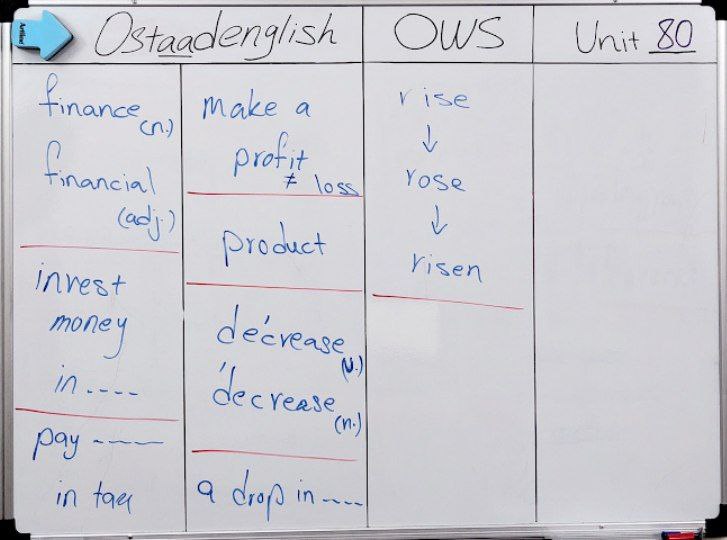 Ostaadenglish
OWS
Unit 80
finance (n.)
financial
(adj.)
invest
money
in ----
pay ----
in tax
make a
profit
≠ loss
product
de'crease
(v.)
'decrease
(n.)
a drop in ----
rise
↓
rose
↓
risen